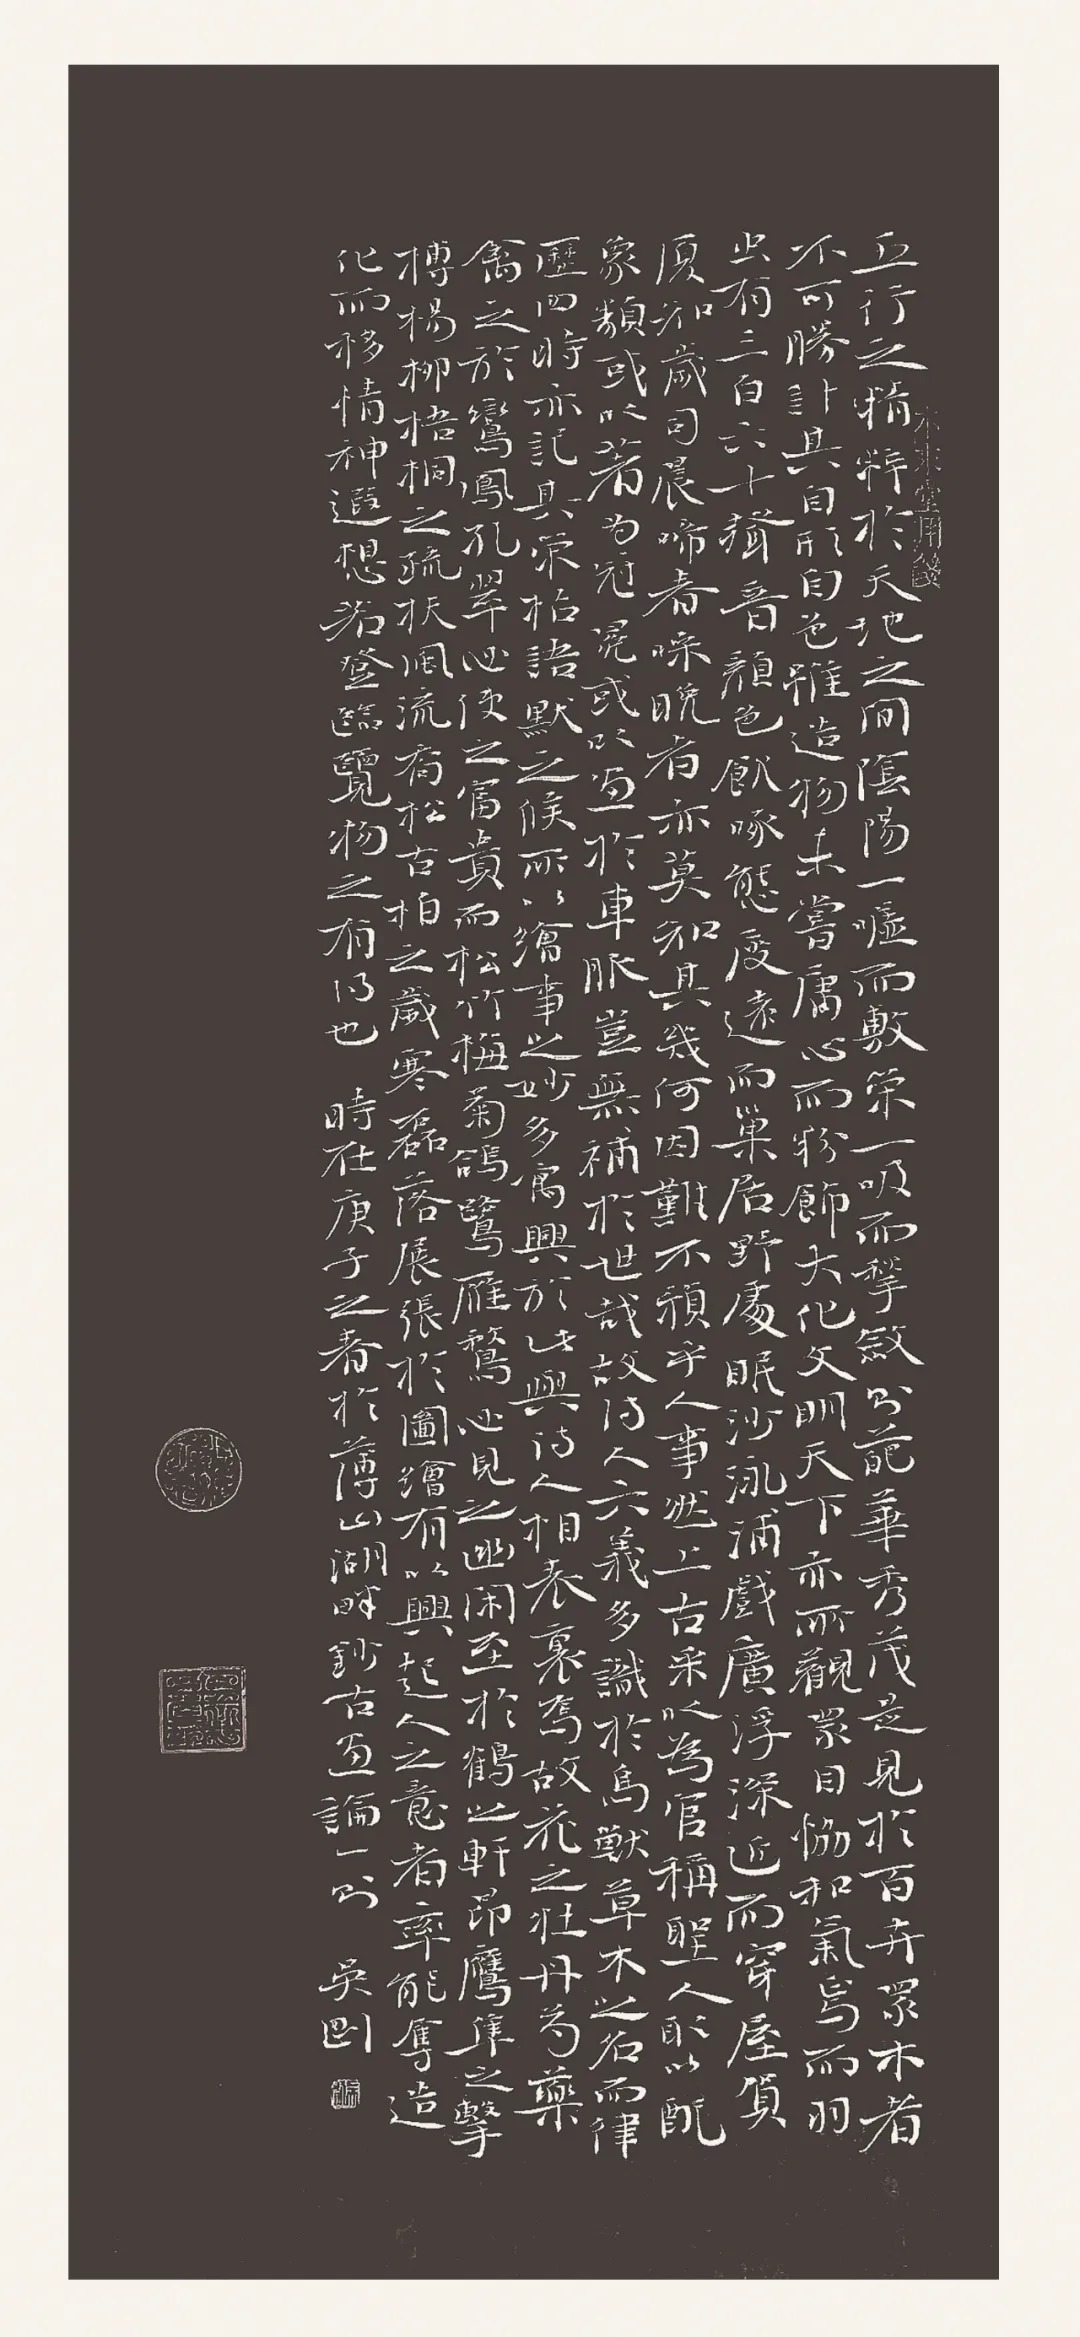 五行之精粹於天地之間陰陽一噓而敷榮一吸而揫斂則葩華秀茂是見於百卉眾木者
不可勝計其自形自色雖造物未嘗庸心而粉飾大化文明天下亦所觀眾目協和氣焉而羽
虫有三百六十聲音顏色飲啄態度遠而巢居野處眠沙泳浦戲廣浮深近而穿屋賀
厦知歲司晨啼春噪晚者亦莫知其幾何因難不預乎人事然上古采以為官稱聖人取以配
象類或以著為冠冕或以畫於車服豈無補於世哉故詩人六義多識於鳥獸草木之名而律
歷四時亦記其榮枯語默之候所以繪事之妙多寓興於此與詩人相表裏焉故花之牡丹芍藥
禽之於鸞鳳孔翠必使之富貴而松竹梅菊鷗鷺雁鶩必見之幽閑至於鶴之軒昂鷹隼之擊
搏楊柳梧桐之疏扶風流喬松古柏之歲寒磊落展張於圖繪有以興起人之意者率能奪造
化而移情神遐想若登臨覽物之有得也 時在庚子之春於薄山湖畔鈔古畫論一則 吳剛